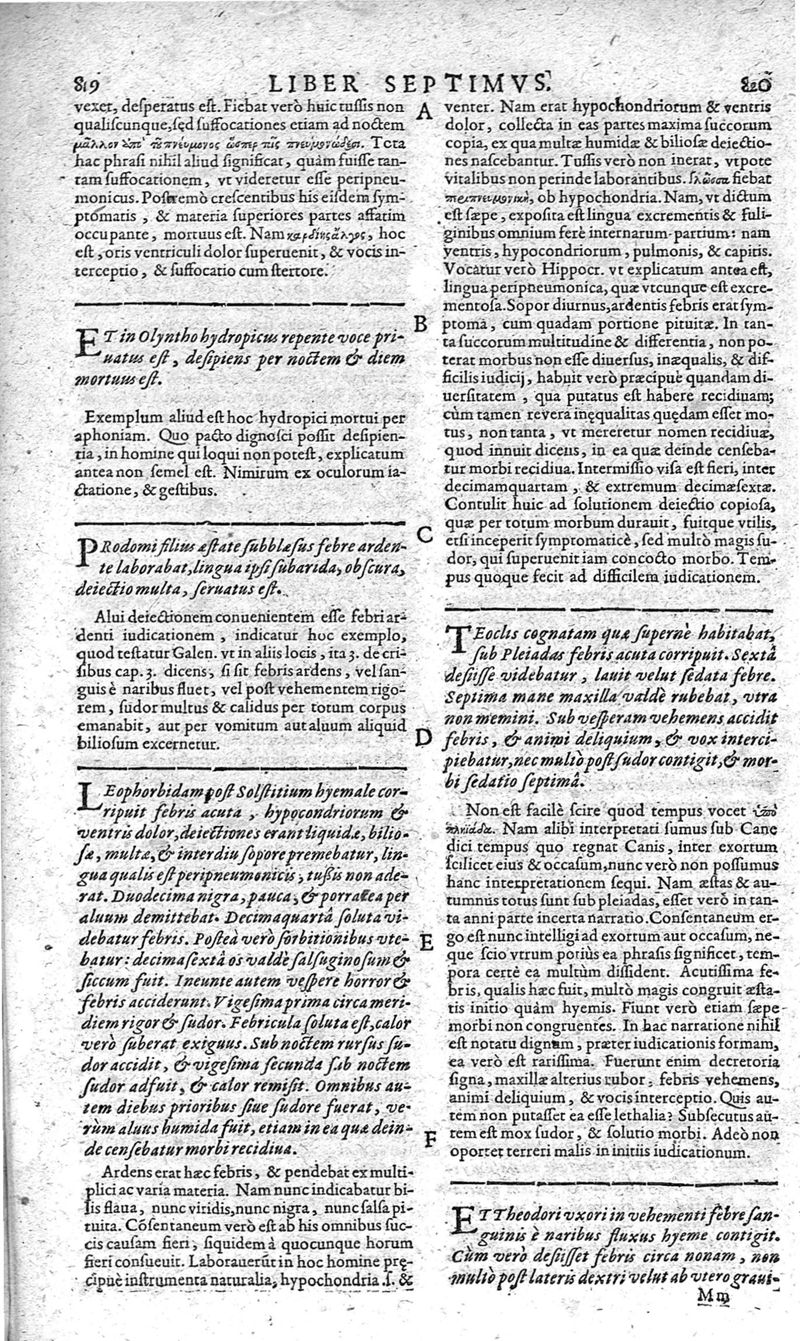 819
LIBER SEPTIMVS.
820
vexet, desperatus est. Fiebat verò huic tussis non
qualiscunque, sed suffocationes etiam ad noctem
μᾶλλον ὑπὸ πνεύμονος ὥσπερ τῆς πνευμονώδεσι. Tota
hac phrasi nihil aliud significat, quàm fuisse tan-
tam suffocationem, vt videretur esse peripneu-
monicus. Postremò crescentibus his eisdem sym-
ptomatis, & materia superiores partes affatim
occupante, mortuus est. Nam καρδίης ἄλγος, hoc
est, oris ventriculi dolor superuenit, & vocis in-
terceptio, & suffocatio cum stertore.
ET in Olyntho hydropicus repente voce pri-
uatus est, desipiens per noctem & diem
mortuus est.
Exemplum aliud est hoc hydropici mortui per
aphoniam. Quo pacto dignosci possit desipien-
tia, in homine qui loqui non potest, explicatum
antea non semel est. Nimirum ex oculorum ia-
ctatione, & gestibus.
PRodomi filius æstate subblæsus febre arden-
te laborabat, lingua ipsi subarida, obscura,
deiectio multa, seruatus est.
Alui deiectionem conuenientem esse febri ar-
denti iudicationem, indicatur hoc exemplo,
quod testatur Galen. vt in aliis locis, ita 3. de cri-
sibus cap. 3. dicens, si sit febris ardens, vel san-
guis è naribus fluet, vel post vehementem rigo-
rem, sudor multus & calidus per totum corpus
emanabit, aut per vomitum aut aluum aliquid
biliosum excernetur.
LEophorbidam post Solstitium hyemale cor-
ripuit febris acuta, hypocondriorum &
ventris dolor, deiectiones erant liquidæ, bilio-
sæ, multæ, & interdiu sopore premebatur, lin-
gua qualis est peripneumonicis, tussis non ade-
rat. Duodecima nigra, pauca, & porracea per
aluum demittebat. Decimaquartâ soluta vi-
debatur febris. Posteà verò sorbitionibus vte-
batur: decimasextâ os valdè salsuginosum &
siccum fuit. Ineunte autem vespere horror &
febris acciderunt. Vigesima prima circa meri-
diem rigor & sudor. Febricula soluta est, calor
verò suberat exiguus. Sub noctem rursus su-
dor accidit, & vigesima secunda sub noctem
sudor adfuit, & calor remisit. Omnibus au-
tem diebus prioribus sine sudore fuerat, ve-
rum aluus humida fuit, etiam in ea quæ dein-
de censebatur morbi recidiua.
Ardens erat hæc febris, & pendebat ex multi-
plici ac varia materia. Nam nunc indicabatur bi-
lis flaua, nunc viridis, nunc nigra, nunc salsa pi-
tuita. Cōsentaneum verò est ab his omnibus suc-
cis causam fieri, siquidem à quocunque horum
fieri consueuit. Laborauerūt in hoc homine præ-
cipuè instrumenta naturalia, hypochondria. s. &
A
B
C
D
E
F
venter. Nam erat hypochondriorum & ventris
dolor, collecta in eas partes maxima succorum
copia, ex qua multæ humidæ & biliosæ deiectio-
nes nascebantur. Tussis verò non inerat, vtpote
vitalibus non perinde laborantibus. γλῶσσα fiebat
περιπνευμονικὴ, ob hypochondria. Nam, vt dictum
est sæpe, exposita est lingua excrementis & fuli-
ginibus omnium ferè internarum partium: nam
ventris, hypocondriorum, pulmonis, & capitis.
Vocatur verò Hippocr. vt explicatum antea est,
lingua peripneumonica, quæ vtcunque est excre-
mentosa. Sopor diurnus, ardentis febris erat sym-
ptoma, cum quadam portione pituitæ. In tan-
ta succorum multitudine & differentia, non po-
terat morbus non esse diuersus, inæqualis, & dif-
ficilis iudicij, habuit verò præcipuè quandam di-
uersitatem, qua putatus est habere recidiuam;
cùm tamen revera inęqualitas quędam esset mo-
tus, non tanta, vt mereretur nomen recidiuæ,
quod innuit dicens, in ea quæ deinde censeba-
tur morbi recidiua. Intermissio visa est fieri, inter
decimamquartam, & extremum decimæsextæ.
Contulit huic ad solutionem deiectio copiosa,
quæ per totum morbum durauit, fuitque vtilis,
etsi inceperit symptomaticè, sed multò magis su-
dor, qui superuenit iam concocto morbo. Tem-
pus quoque fecit ad difficilem iudicationem.
TEoclis cognatam quæ supernè habitabat,
sub Pleiadas febris acuta corripuit. Sextâ
desiisse videbatur, lauit velut sedata febre.
Septima mane maxilla valdè rubebat, vtra
non memini. Sub vesperam vehemens accidit
febris, & animi deliquium, & vox interci-
piebatur, nec multò post sudor contigit, & mor-
bi sedatio septimâ.
Non est facilè scire quod tempus vocet ὑπὸ
πληιάδα. Nam alibi interpretati sumus sub Cane
dici tempus quo regnat Canis, inter exortum
scilicet eius & occasum, nunc verò non possumus
hanc interpretationem sequi. Nam æstas & au-
tumnus totus sunt sub pleiadas, esset verò in tan-
ta anni parte incerta narratio. Consentaneum er-
go est nunc intelligi ad exortum aut occasum, ne-
que scio vtrum potius ea phrasis significet, tem-
pora certè ea multùm dissident. Acutissima fe-
bris, qualis hæc fuit, multò magis congruit æsta-
tis initio quàm hyemis. Fiunt verò etiam sæpe
morbi non congruentes. In hac narratione nihil
est notatu dignum, præter iudicationis formam,
ea verò est rarissima. Fuerunt enim decretoria
signa, maxillæ alterius rubor, febris vehemens,
animi deliquium, & vocis interceptio. Quis au-
tem non putasset ea esse lethalia? Subsecutus au-
tem est mox sudor, & solutio morbi. Adeò non
oportet terreri malis in initiis iudicationum.
ET Theodori vxori in vehementi febre san-
guinis è naribus fluxus hyeme contigit.
Cùm verò desiisset febris circa nonam, non
multò post lateris dextri velut ab vtero graui-
Mm